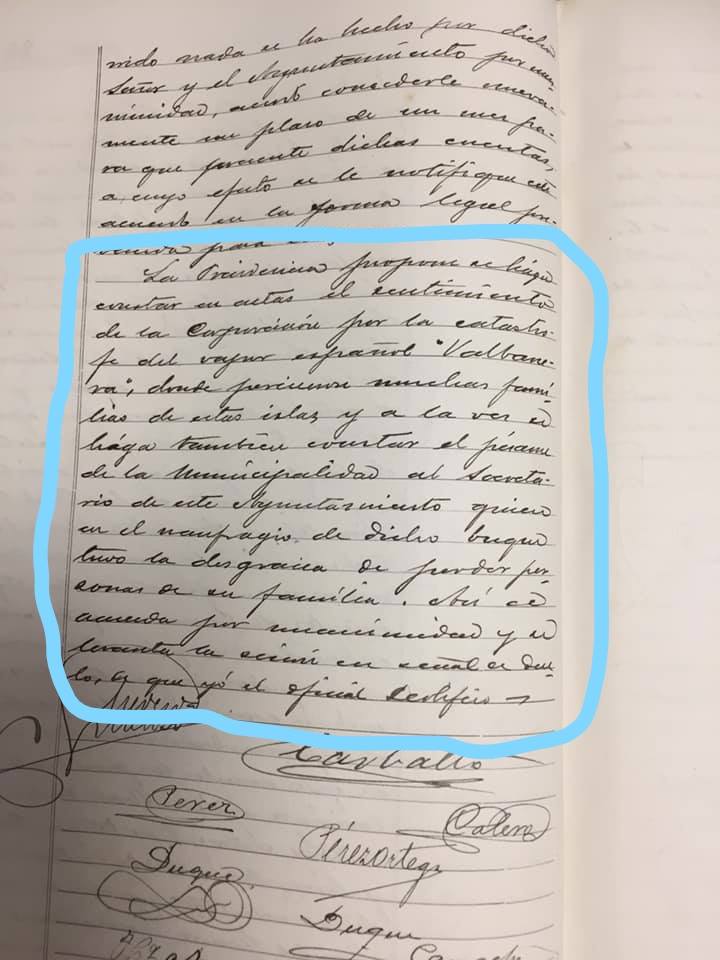 nido nada se ha hecho por dicho
Señor y el Ayuntamiento por una-
nimidad, acordó concederle nueva-
mente un plaso de un mes pa-
ra que presente dichas cuentas,
a cuyo efecto se le notifique este
acuerdo en la forma legal pre-
venida para
La Precidencia propone se haga
constar en actas el sentimiento
de la Corporación por la catastro-
fe del vapor español "Valbane-
ra", donde perecieron muchas fami-
lias de estas islas y a la ves se
haga tambien constar el pésame
de la Municipalidad al Secreta-
rio de este Ayuntamiento quien
en el naufragio de dicho buque
tuvo la desgracia de perder per-
sonas de su familia. Así se
acuerda por unanimidad y se
levanta la seción en señal de due-
lo, de que yó el oficial certifico
Carballo
Perez
Calero
Pérez Ortega
Duque
Duque